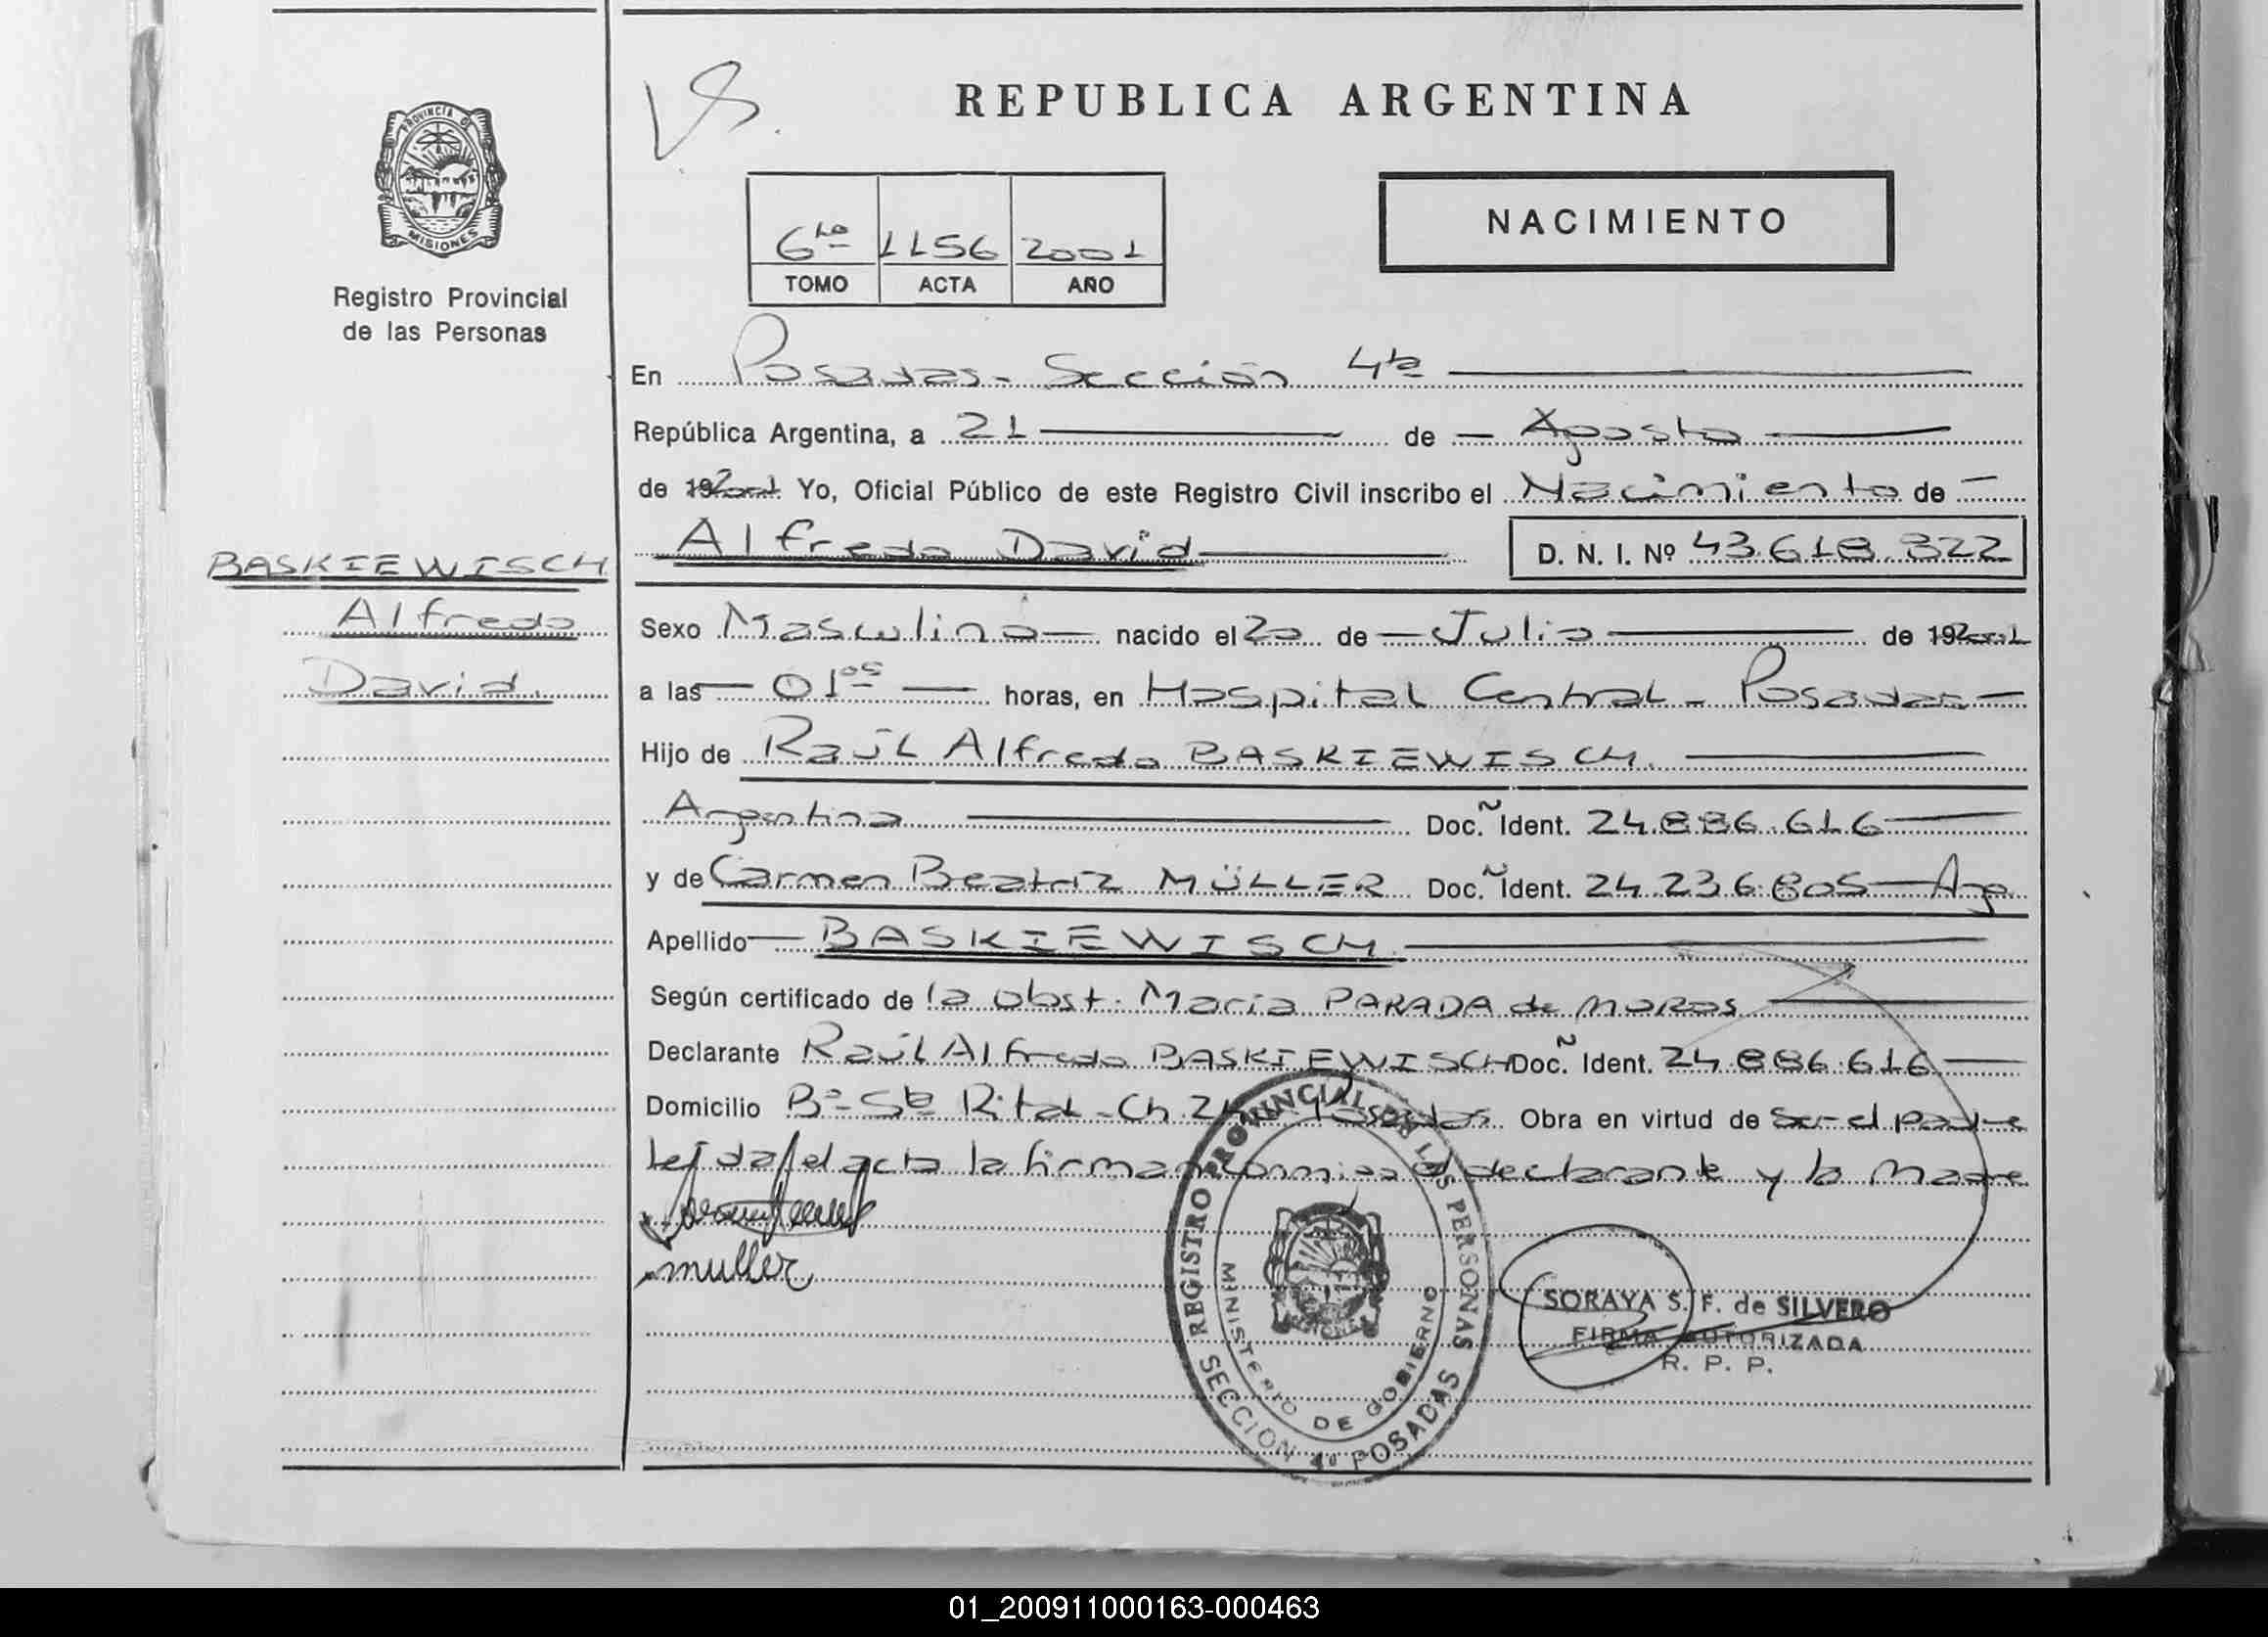 REPUBLICA ARGENTINA
PROVINCIA DE
MISIONES
Registro Provincial
de las Personas
NACIMIENTO
6to 1156 2001
TOMO ACTA AÑO
En Posadas - Sección 4ta
República Argentina, a 21 de Agosto
de 19 2001 Yo, Oficial Público de este Registro Civil inscribo el Nacimiento de
Alfredo David D. N. I. Nº 43.618.322
BASKIEWISCH
Alfredo
David.
Sexo Masculino nacido el 20 de Julio de 19 2001
a las 01 05 horas, en Hospital Central - Posadas
Hijo de Raúl Alfredo BASKIEWISCH.
Argentino Doc.Ñ Ident. 24.886.616
y de Carmen Beatriz MÜLLER Doc.Ñ Ident. 24.236.805 - Arg.
Apellido BASKIEWISCH.
Según certificado de la obst. María PARADA de MOROS
Declarante Raúl Alfredo BASKIEWISCH Doc.Ñ Ident. 24.886.616
Domicilio Bº Sta Rita - Ch. Posadas. Obra en virtud de ser el padre
Leída el acta la firman conmigo el declarante y la Madre
muller
REGISTRO PROVINCIAL DE LAS PERSONAS
MINISTERIO DE GOBIERNO
SECCION 4ª POSADAS
SORAYA S. F. de SILVERO
FIRMA AUTORIZADA
R. P. P.
01_200911000163-000463